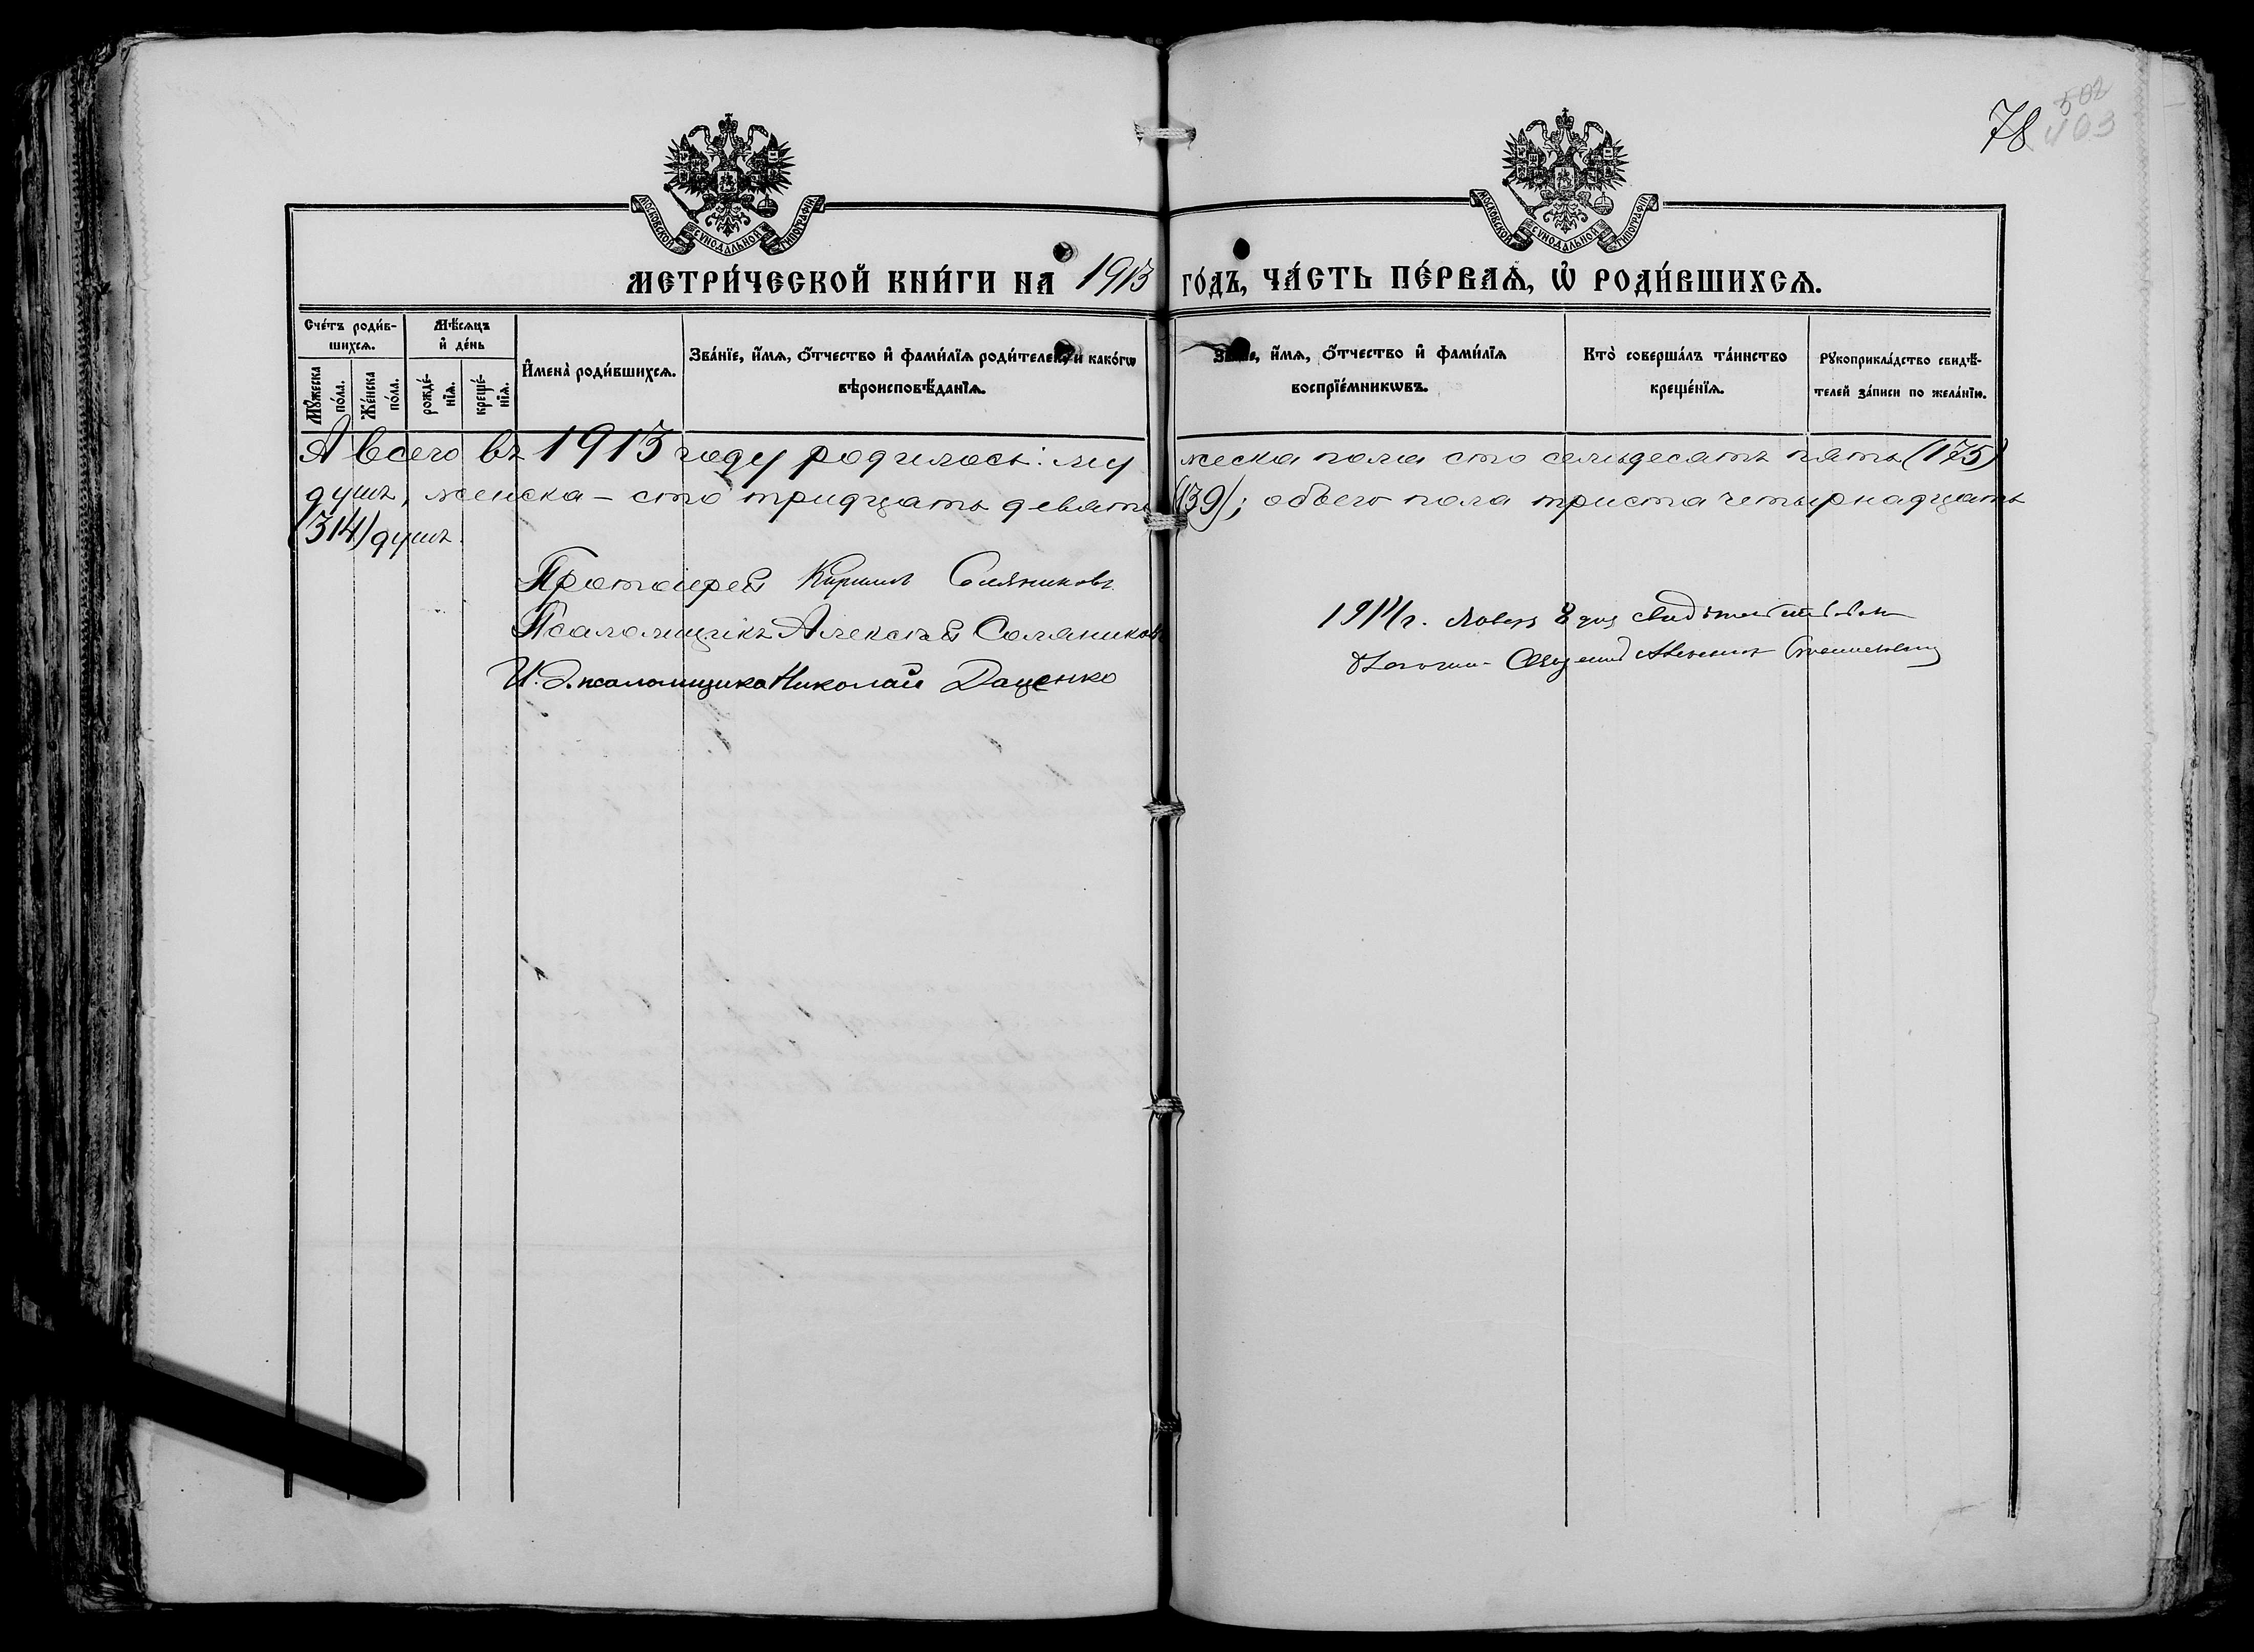 78
502
403
МОСКОВСКОЙ СѴНОДАЛЬНОЙ ТИПОГРАФІИ
МОСКОВСКОЙ СѴНОДАЛЬНОЙ ТИПОГРАФІИ
МЕТРИ́ЧЕСКОЙ КНИ́ГИ НА 1913 ГО́ДЪ, ЧА́СТЬ ПЕ́РВАѦ, Ѡ҆ РОДИ́ВШИХСѦ.
Сче́тъ роди́в-
шихсѧ.
Мꙋ́жеска по́ла.
Же́нска по́ла.
Мѣ́сѧцъ
и҆ де́нь
рожде́-
нїѧ.
креще́-
нїѧ.
И҆мена̀ роди́вшихсѧ.
Зва́нїе, и҆́мѧ, ѻ҆́тчество и҆ фами́лїѧ роди́телей, и како́гѡ
вѣроисповѣ́данїѧ.
Зва́нїе, и҆́мѧ, ѻ҆́тчество и҆ фами́лїѧ
воспрїе́мникѡвъ.
Кто̀ соверша́лъ та́инство
креще́нїѧ.
Рꙋкоприкла́дство свидѣ́-
телей за́писи по жела́нїю.
А всего въ 1913 году родилось: мужеска пола сто семьдесятъ пять (175)
душъ, женска – сто тридцать девять (139); обоего пола триста четырнадцать
(314) душъ.
Протоіерей Кириллъ Соляниковъ
Псаломщикъ Алексѣй Соляниковъ
И. д. псаломщика Николай Даценко
1914 г. 8 дня свидѣтельствовалъ